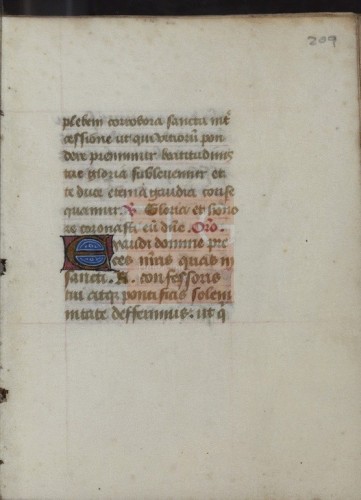 209
plebem corrobora sancta int̄
cessione ut qui vitiorū pon
dere premimur beatitudinis
tue gloria sublevemur et
te duce eterna gaudia conse
quamur. V̄. Gloria et hono
re coronasti eū dn̄e. Oro
Exaudi domine pre
ces nr̄as quas in
sancti. N. confessoris
tui atq̄ pontificis solem
nitate defferimus. ut q̄